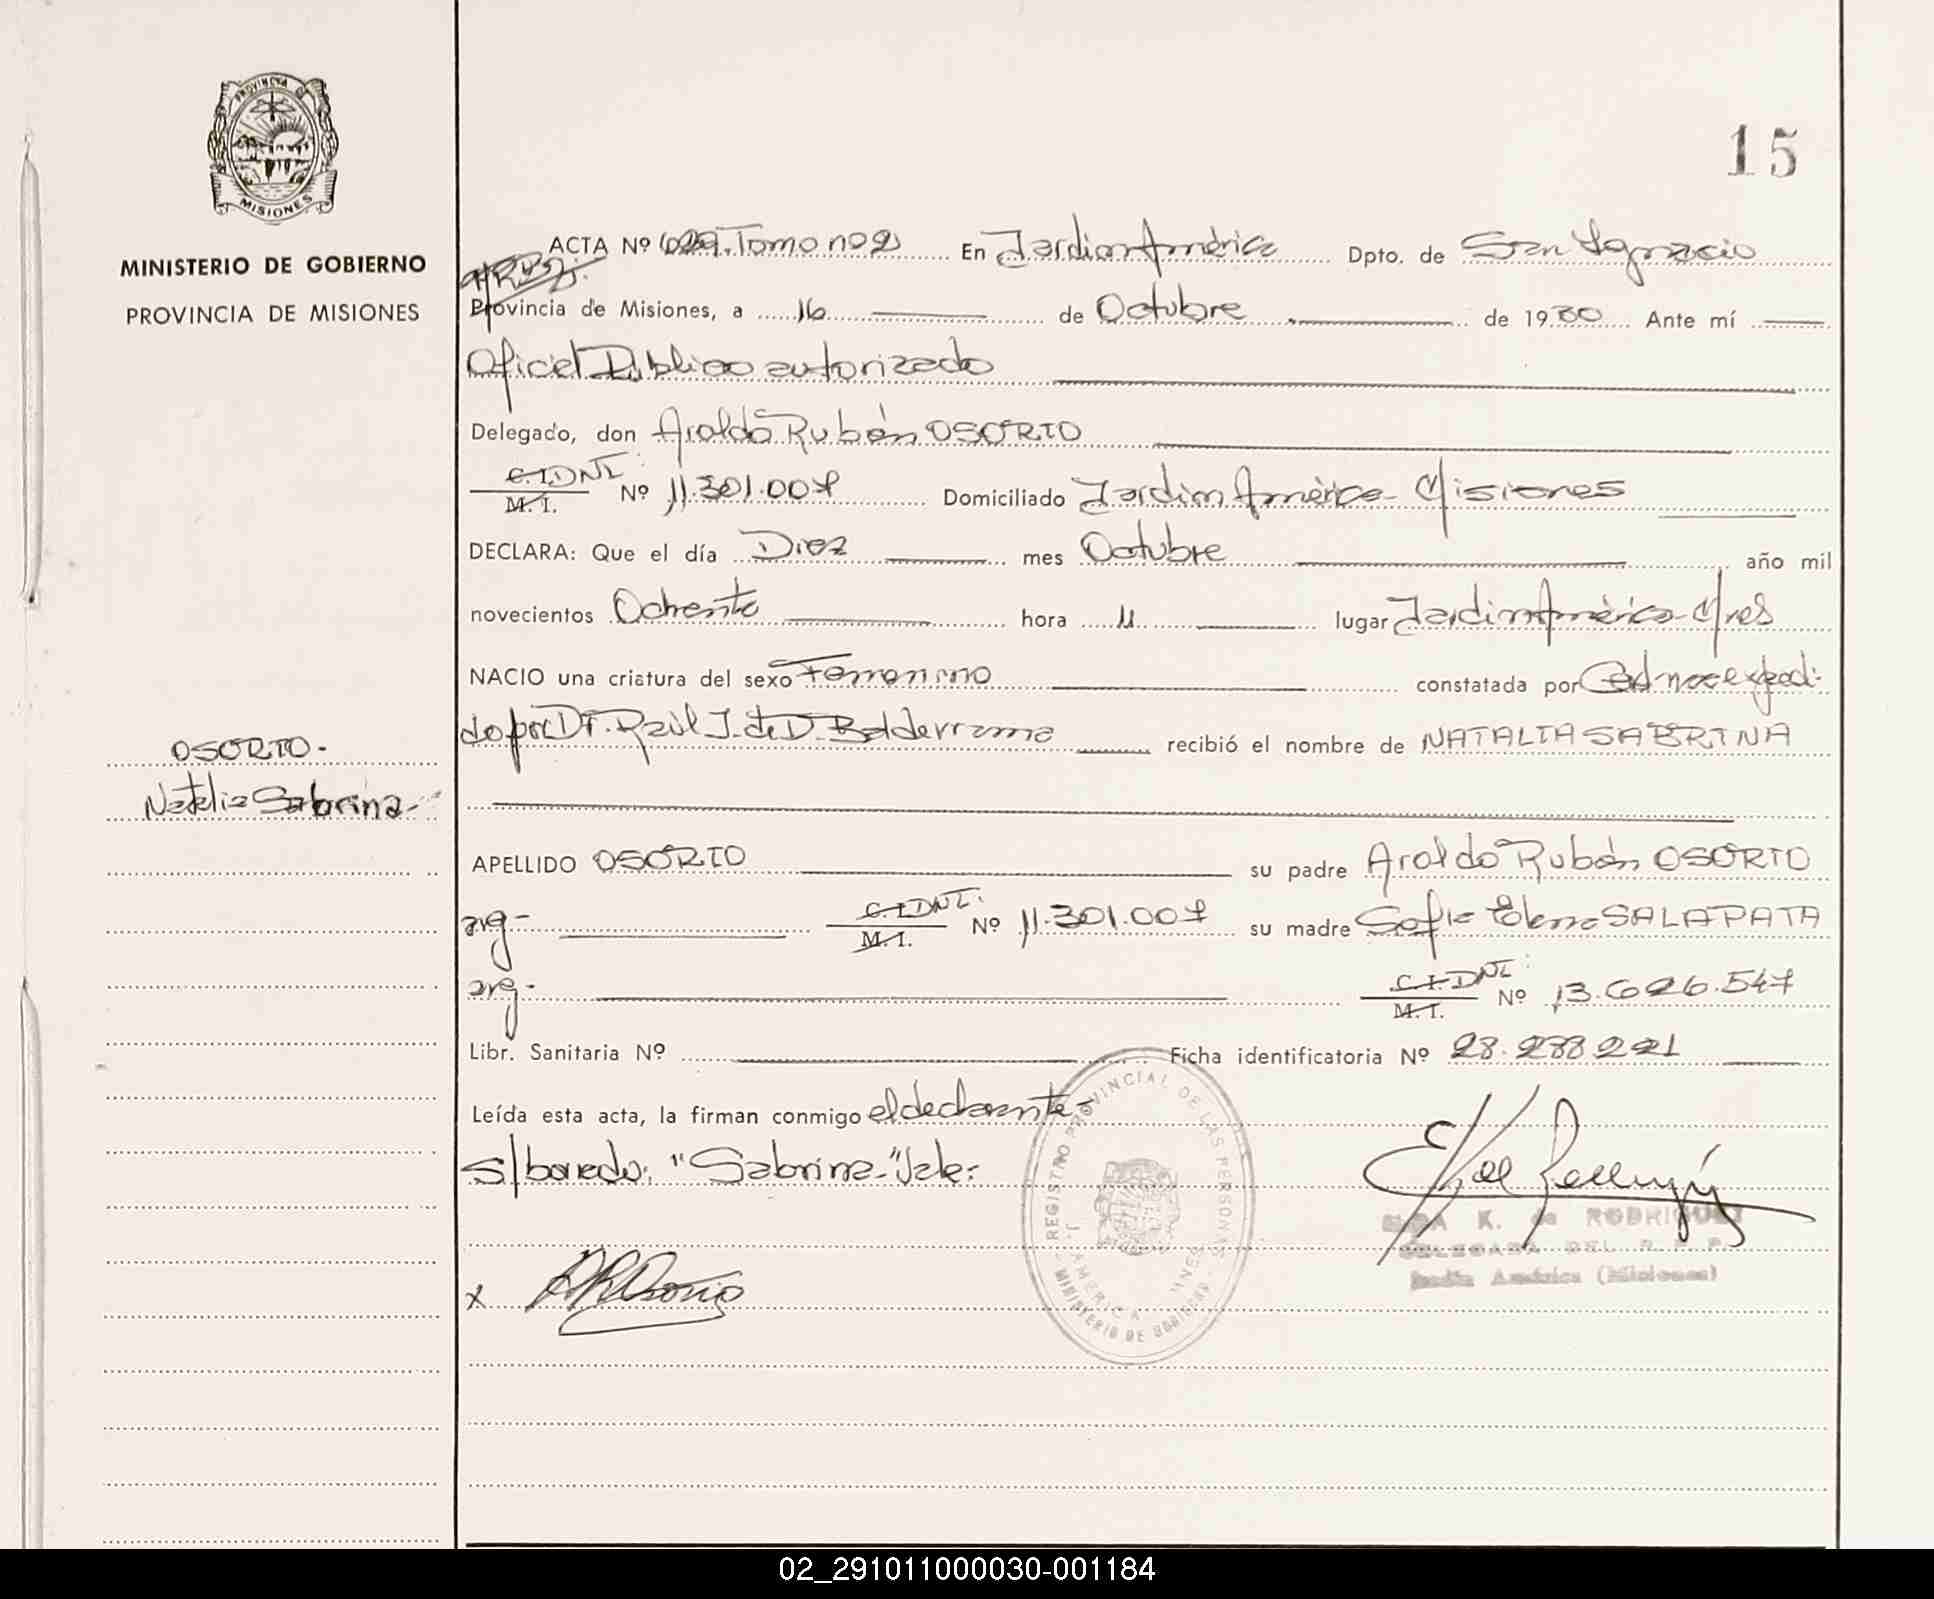 PROVINCIA DE
MISIONES
MINISTERIO DE GOBIERNO
PROVINCIA DE MISIONES
15
ACTA Nº 1029. Tomo nº 2 En Jardin América Dpto. de San Ignacio
Provincia de Misiones, a 16 de Octubre de 1980 Ante mí
Oficial Público autorizado
Delegado, don Aroldo Rubén OSORIO
C.I. DNI: M.I. Nº 11.301.007 Domiciliado Jardin América- Misiones
DECLARA: Que el día Diez mes Octubre año mil
novecientos Ochenta hora 11 lugar Jardin América- Mnes
NACIO una criatura del sexo Femenino constatada por Ced nac expedi-
do por Dr. Raúl J. de D. Balderrama recibió el nombre de NATALIA SABRINA
OSORIO-
Natalia Sabrina-
APELLIDO OSORIO su padre Aroldo Rubén OSORIO
arg- C.I. DNI. M.I. Nº 11.301.007 su madre Sofia Elena SALAPATA
arg- C.I. DNI: M.I. Nº 13.626.547
Libr. Sanitaria Nº Ficha identificatoria Nº 28.288.221
Leída esta acta, la firman conmigo el declarante-
s/borrado: "Sabrina-" Vale:
REGISTRO PROVINCIAL DE LAS PERSONAS
J. AMERICA MNES
MINISTERIO DE GOBIERNO
ELSA K. de RODRIGUEZ
DELEGADA DEL R.P.P.
Jardín América (Misiones)
x AROsorio
02_291011000030-001184